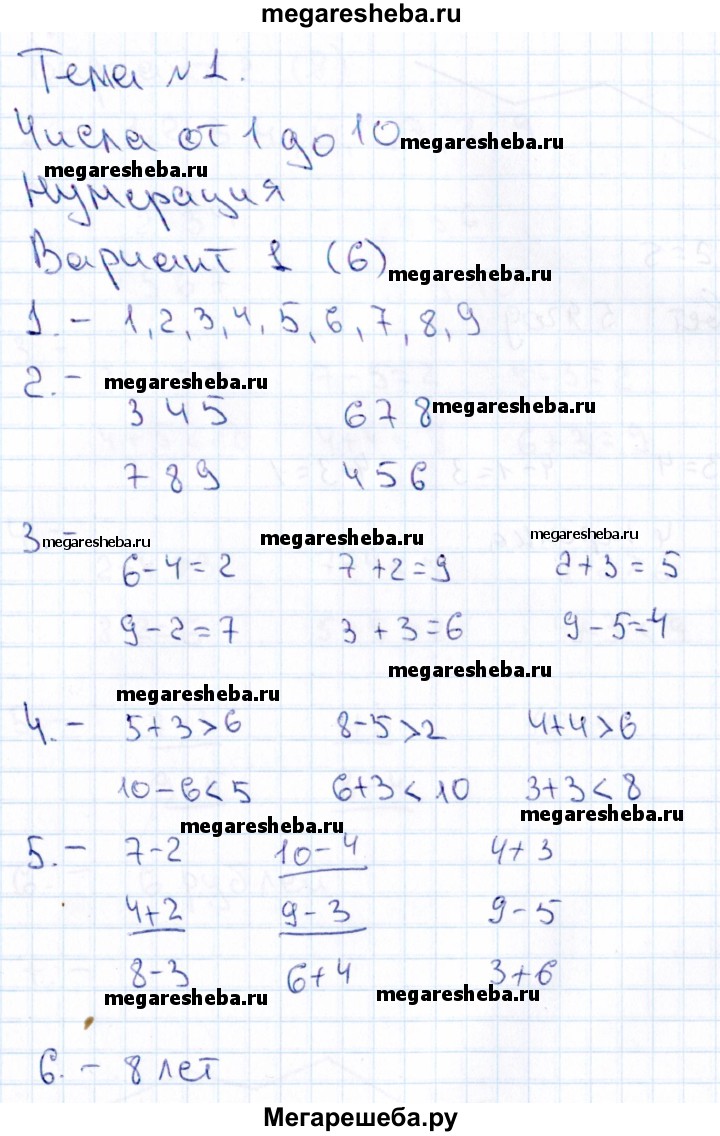 megaresheba.ru
Тема №1.
Числа от 1 до 10 megaresheba.ru
megaresheba.ru
Нумерация
Вариант 1 (6) megaresheba.ru
1. – 1, 2, 3, 4, 5, 6, 7, 8, 9
2. – megaresheba.ru
3 4 5 6 7 8 megaresheba.ru
7 8 9 4 5 6
3 – megaresheba.ru megaresheba.ru megaresheba.ru
6-4=2 7+2=9 2+3=5
9-2=7 3+3=6 9-5=4
megaresheba.ru
megaresheba.ru
4. – 5+3>6 8-5>2 4+4>6
10-6<5 6+3<10 3+3<8
megaresheba.ru megaresheba.ru
5. – 7-2 10-4 4+3
4+2 9-3 9-5
8-3 6+4 3+6
megaresheba.ru megaresheba.ru
6. – 8 лет
Мегарешеба.ру